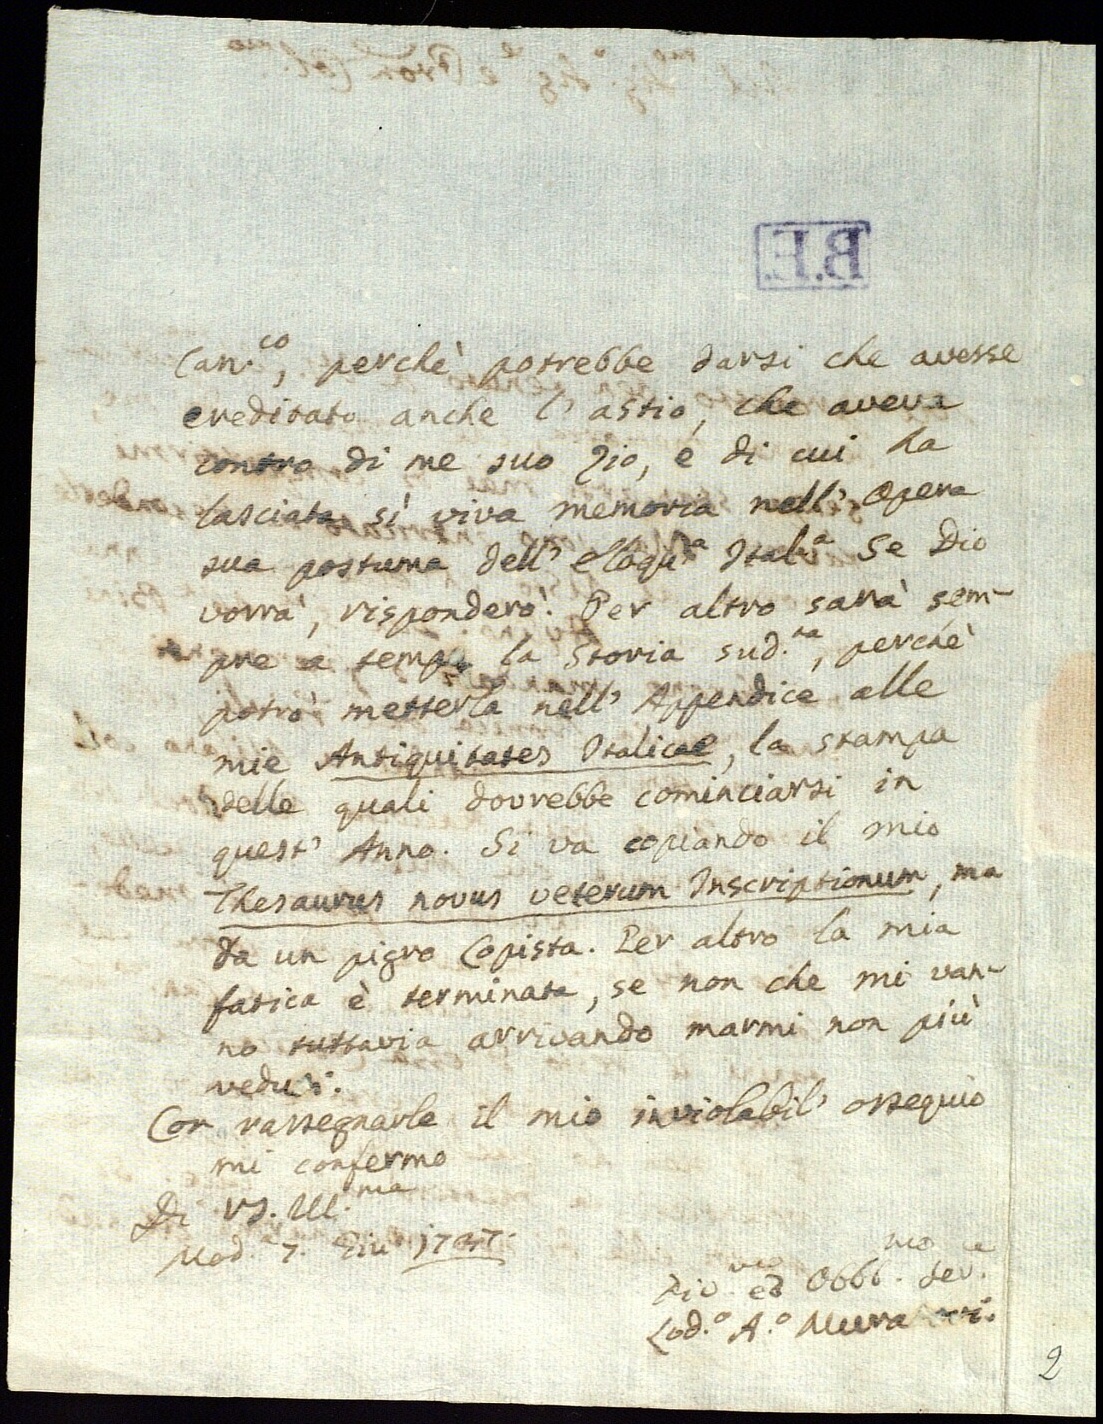 Can.co, perchè potrebbe darsi che avesse
ereditato anche l' astio, che aveva
contro di me suo Zio, e di cui ha
lasciata sì viva memoria nell' Opera
sua postuma dell' Eloqu.a Ital.a Se Dio
vorrà, risponderò. Per altro sarà sem-
pre a tempo la Storia sud.ta, perchè
potrò metterla nell' Appendice alle
mie Antiquitates Italicae, la stampa
delle quali dovrebbe cominciarsi in
quest' Anno. Si va copiando il mio
Thesaurus novus veterum Inscriptionum, ma
da un pigro Copista. Per altro la mia
fatica è terminata, se non che mi van-
no tuttavia arrivando marmi non più
veduti.
Con rassegnarle il mio inviolabil' ossequio
mi confermo
Di VS. Ill.ma
Mod.a 7. Giu 1737.
Div.mo ed Obbl.mo Ser.e
Lod.o A.o Muratori.
B.E.
2